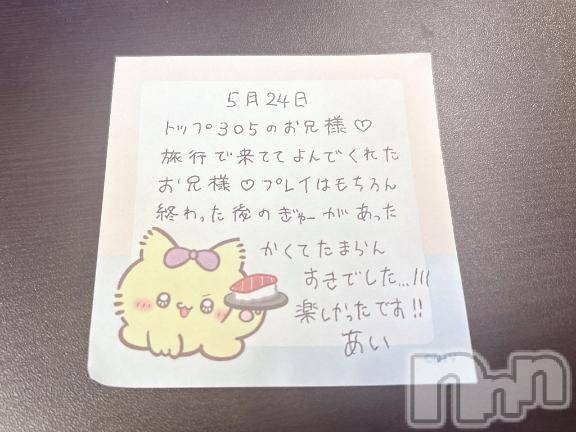 5月24日
トップ305のお兄様♡
旅行で来ててよんでくれた
お兄様♡プレイはもちろん
終わった後のぎゅーがあった
かくてたまらん
すきでした...!!!
楽しかったです!!
あい
nnn